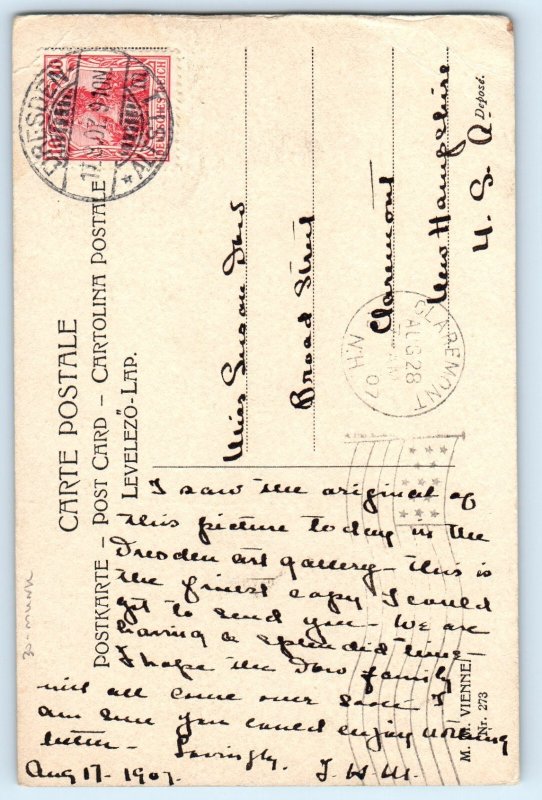 CARTE POSTALE
POSTKARTE – POST CARD – CARTOLINA POSTALE
LEVELEZŐ-LAP.
DRESDEN
ALTST.
17.8.07. 9-10N
10 10
DEUTSCHES REICH
Miss Susan Dow
Broad Street
Claremont
New Hampshire
U. S. A
Deposé.
CLAREMONT
AUG 28
07
N.H.
I saw the original of
this picture today in the
Dresden art gallery – this is
the finest copy I could
get to send you – We are
having a splendid time.
I hope the Dow family
will all come over soon I
am sure you could enjoy nothing
better – Lovingly.
Aug 17 - 1907. J. H. M.
M. M. VIENNE.
Nr. 273